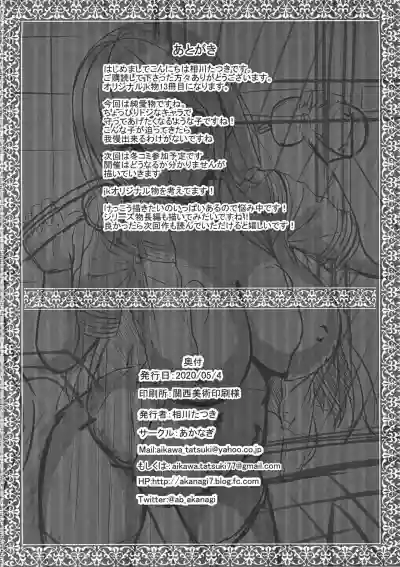 あとがき
はじめましてこんにちは相川たつきです。
ご購読して下さった方々ありがとうございます。
オリジナルjk物13冊目になります。
今回は純愛物ですね。
ちょっぴりドジなキャラで
守ってあげたくなるような子ですね！
こんな子が迫ってきたら
我慢出来るわけがないですね
次回は冬コミ参加予定です
開催はどうなるか分かりませんが
描いていきます
jkオリジナル物を考えてます！
けっこう描きたいのいっぱいあるので悩み中です！
シリーズ物長編も描いてみたいですね！！
良かったら次回作も読んでいただけると嬉しいです！
奥付
発行日：2020/05/4
印刷所：関西美術印刷様
発行者：相川たつき
サークル：あかなぎ
Mail:aikawa_tatsuki@yahoo.co.jp
もしくは：aikawa.tatsuki77@gmail.com
HP:http://akanagi7.blog.fc.com
Twitter:@ab_akanagi